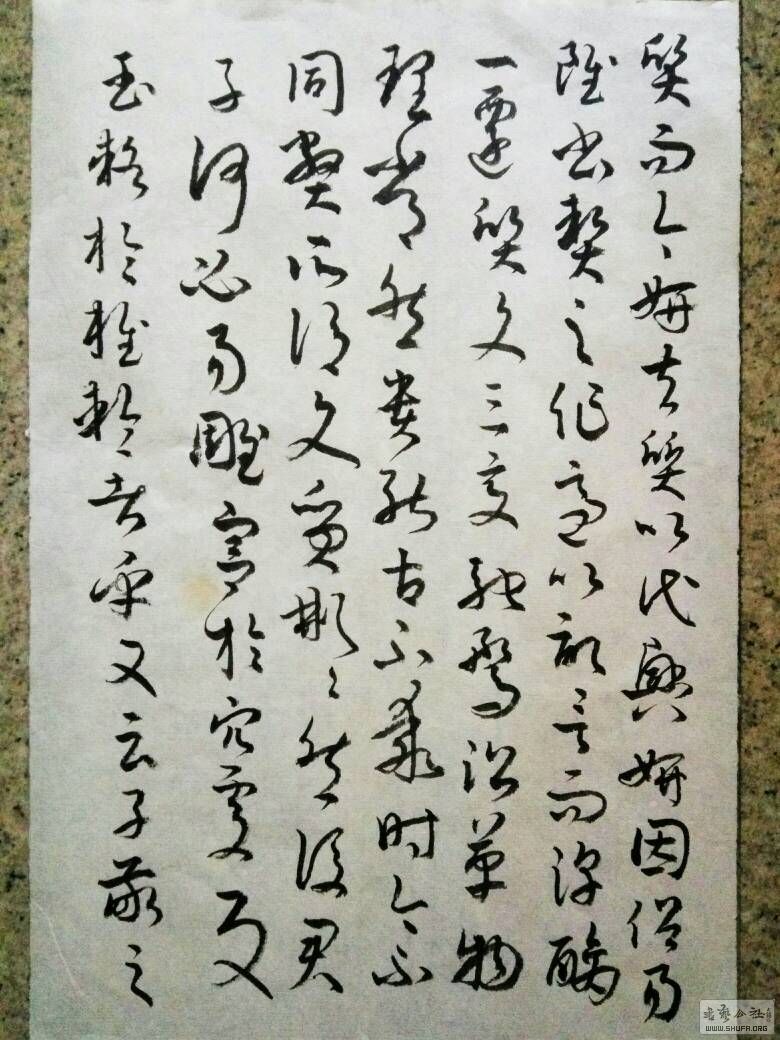 质而今妍夫质以代興妍因俗易
雖书契之作適以記言而淳醨
一遷质文三变馳騖沿革物
理常然贵能古不乖时今不
同弊所谓文质彬〻然後君
子何必易雕宫於穴处反
玉輅於椎輪者乎又云子敬之
书艺公社
WWW.SHUFA.ORG